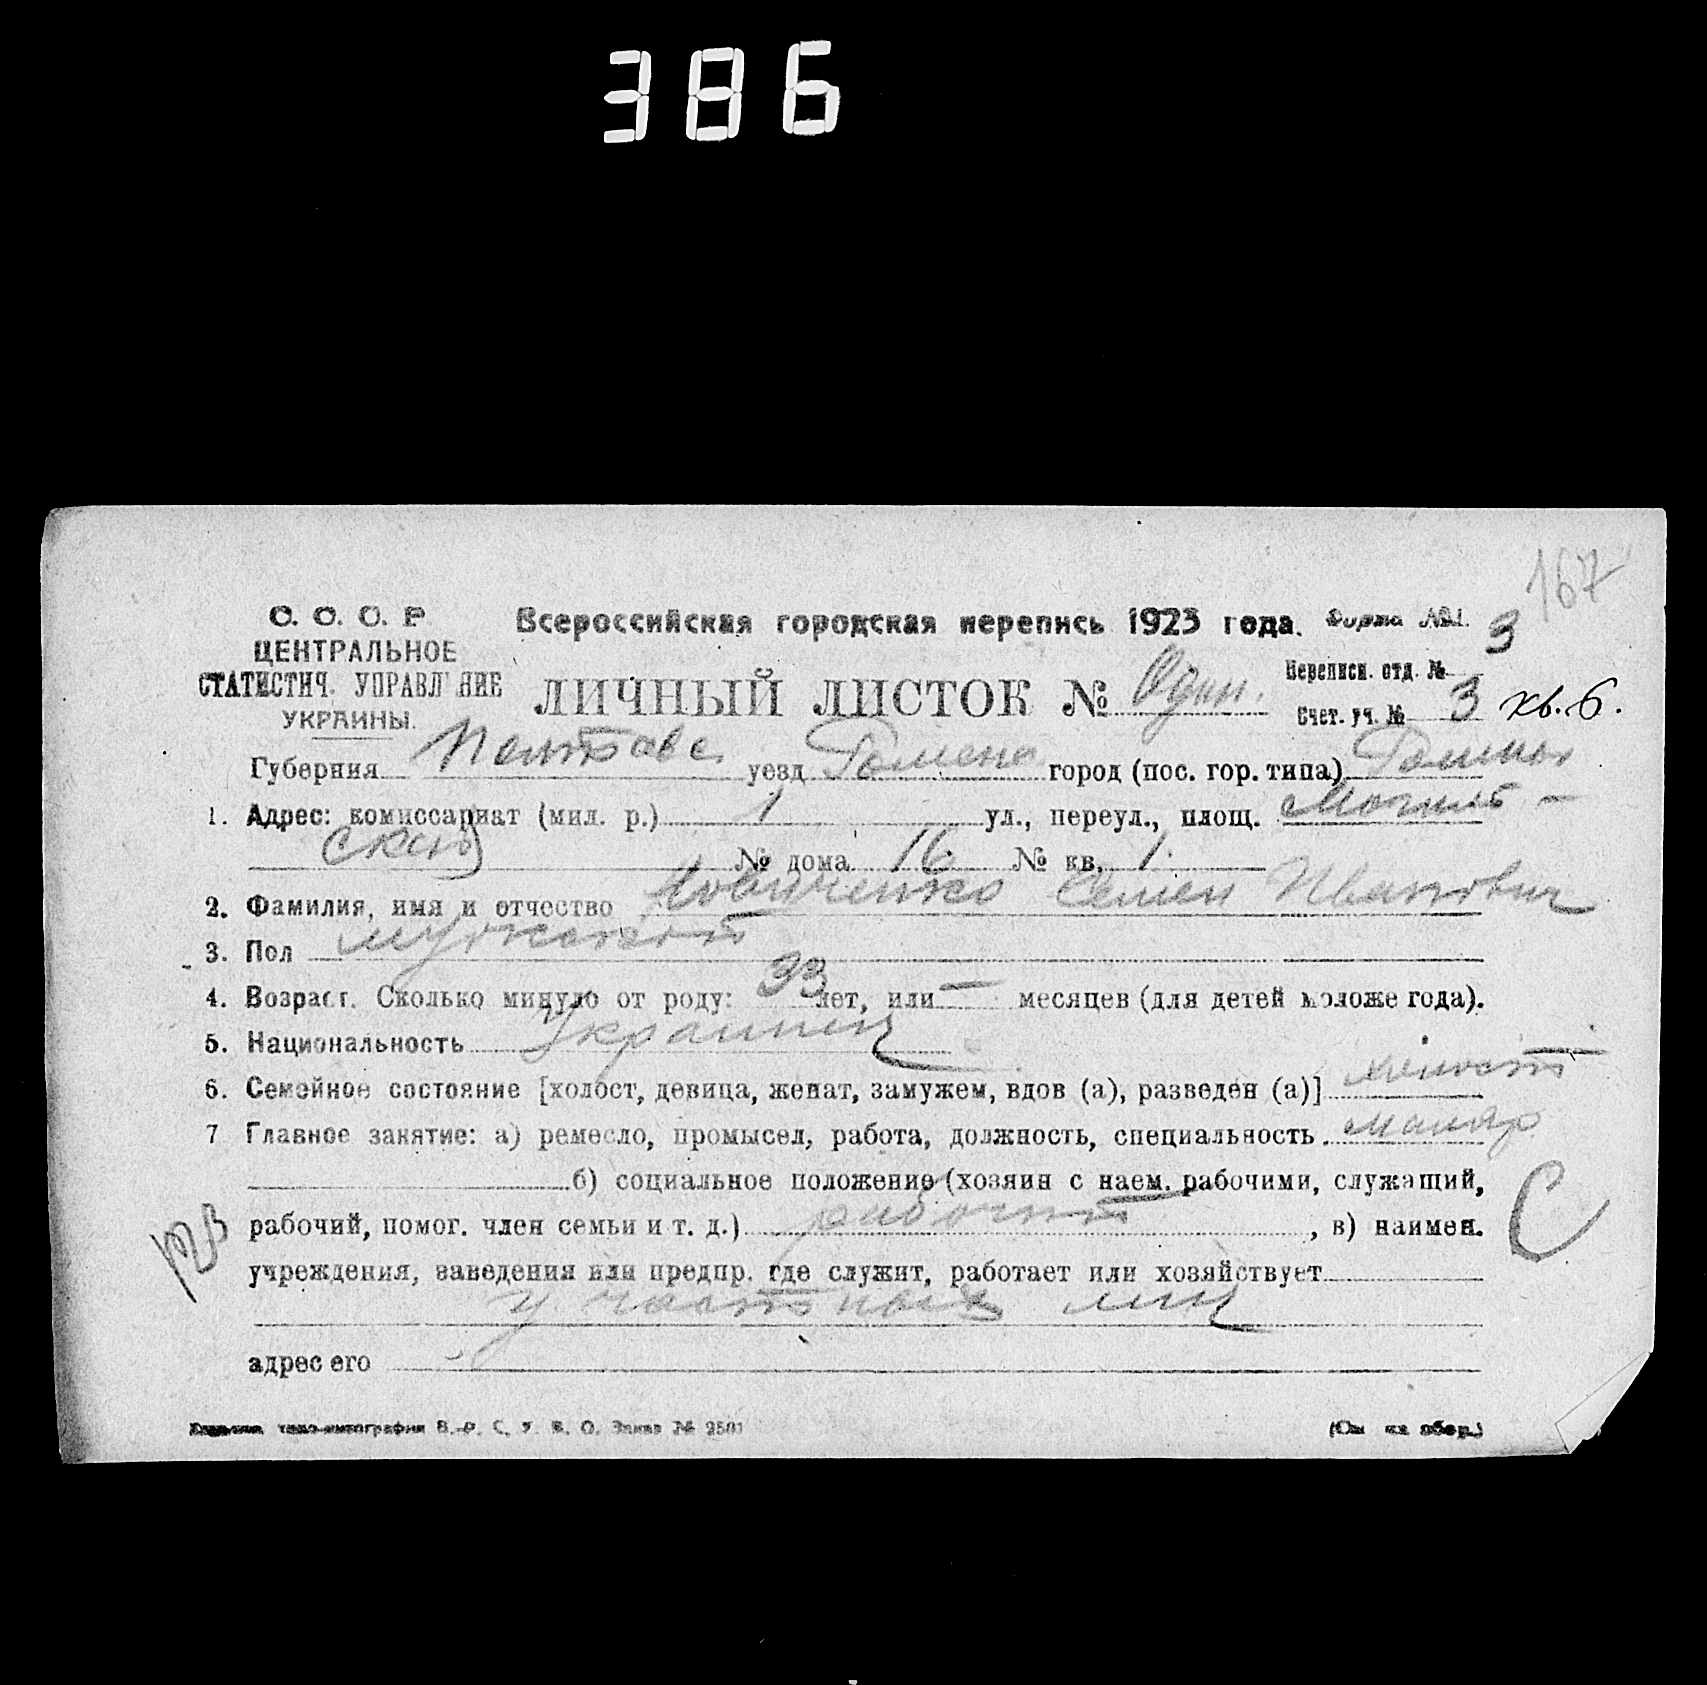 386
167
С. С. С. Р
ЦЕНТРАЛЬНОЕ
СТАТИСТИЧ. УПРАВЛ НИЕ
УКРАИНЫ.
Всероссийская городская перепись 1923 года. Форма №1.
ЛИЧНЫЙ ЛИСТОК № Один.
Переписн. отд. № 3
Счет. уч. № 3 кв. 6.
Губерния Полтавс уезд Роменс город (пос. гор. типа) Ромны
1. Адрес: комиссариат (мил. р.) 1 ул., переул., площ.
№ дома 16 № кв. 1.
2. Фамилия, имя и отчество Семен Иванович
3. Пол мужской
4. Возраст. Сколько минуло от роду: 33 лет, или — месяцев (для детей моложе года).
5. Национальность Украинец
6. Семейное состояние [холост, девица, женат, замужем, вдов (а), разведен (а)] холост
7 Главное занятие: а) ремесло, промысел, работа, должность, специальность. маляр
б) социальное положение (хозяин с наем. рабочими, служащий,
рабочий, помог. член семьи и т. д.) рабочий , в) наимен.
С
учреждения, заведения или предпр. где служит, работает или хозяйствует
у частных лиц
адрес его
типо-литография В.-У. С. У. В. О. Заказ № 2501
(См на обор.)